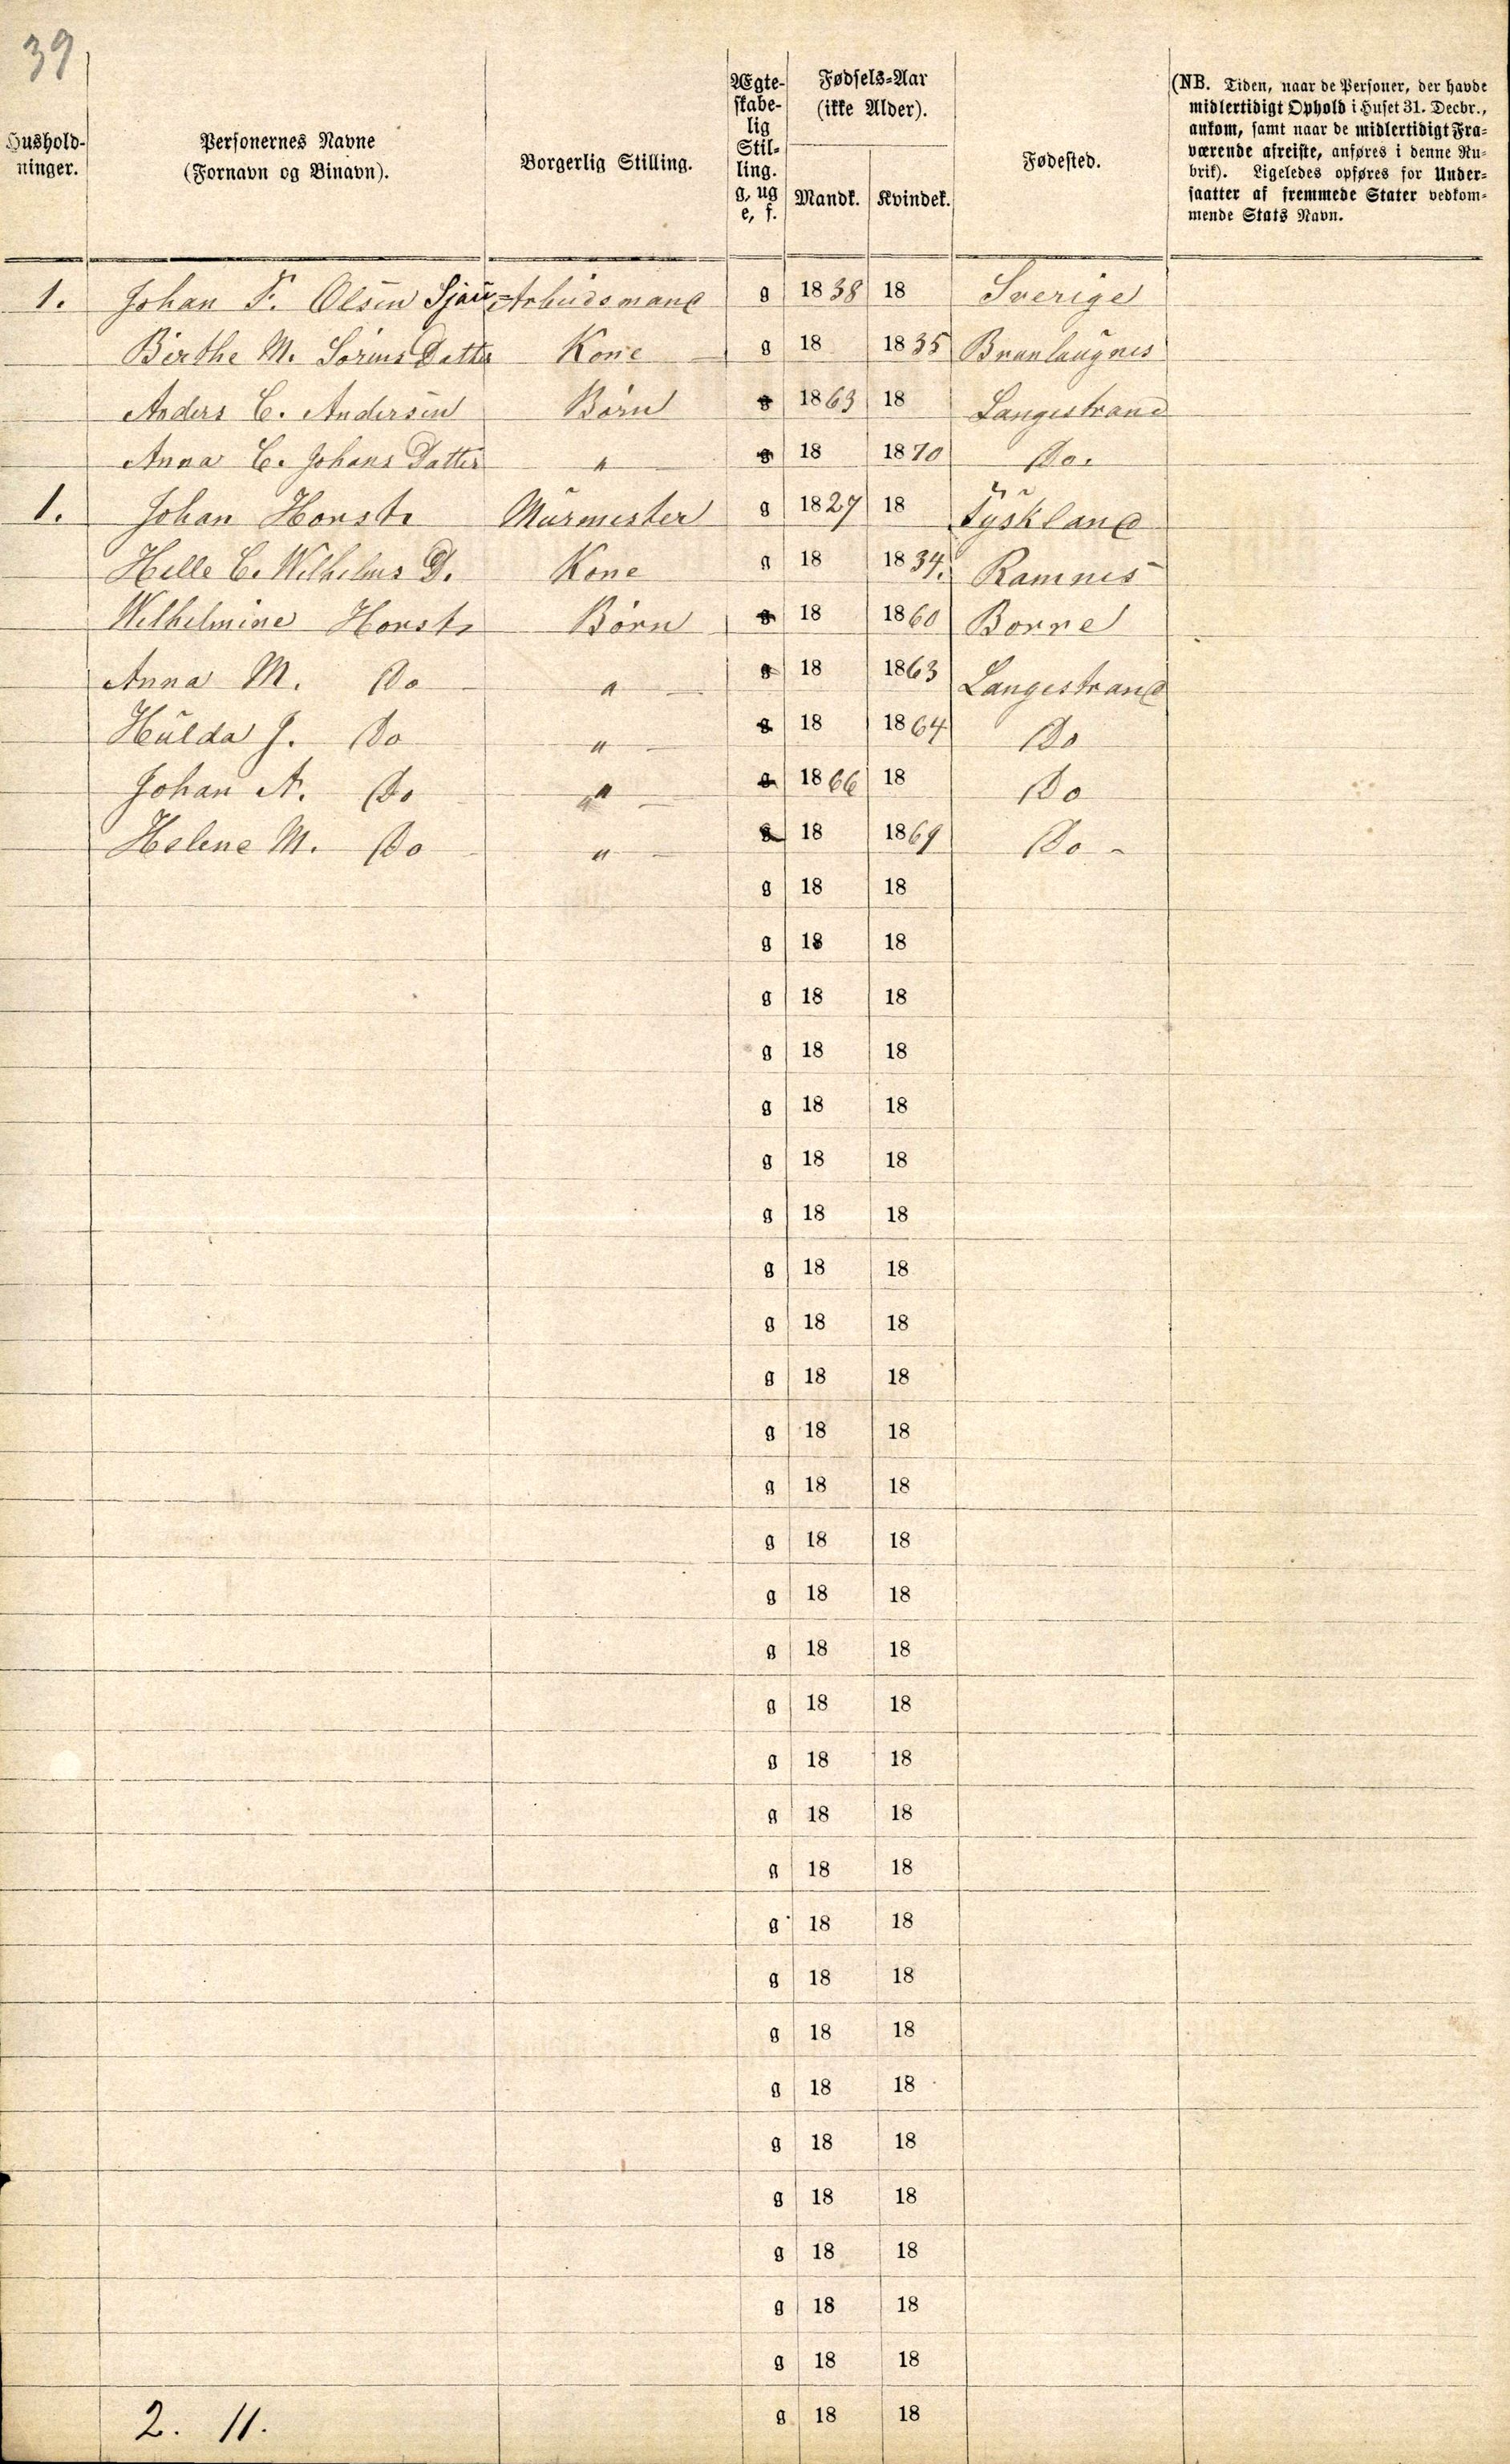 39
Hushold-
ninger.
Personernes Navne
(Fornavn og Binavn).
Borgerlig Stilling.
Ægte-
skabe-
lig
Stil-
ling.
g, ug
e, f.
Fødsels-Aar
(ikke Alder).
Mandk. Kvindek.
Fødested.
(NB. Tiden, naar de Personer, der havde
midlertidigt Ophold i Huset 31. Decbr.,
ankom, samt naar de midlertidigt Fra-
værende afreiste, anføres i denne Ru-
brik). Ligeledes opføres for Under-
saatter af fremmede Stater vedkom-
mende Stats Navn.
1. Johan F. Olsen Sjau-Arbeidsmand g 1838 18 Sverige
Berthe M. Sørens Datter Kone g 18 1835 Brunlaugnes
Anders C. Andersen Børn g 1863 18 Langestrand
Anna C. Johans Datter " g 18 1870 Do.
1. Johan Horst Murmester g 1827 18 Tyskland
Helle C. Wilhelms D. Kone g 18 1834. Ramnes
Wilhelmine Horst Børn g 18 1860 Borre
Anna M. Do " g 18 1863 Langestrand
Hulda J. Do " g 18 1864 Do
Johan A. Do " g 1866 18 Do
Helene M. Do " g 18 1869 Do
g 18 18
g 18 18
g 18 18
g 18 18
g 18 18
g 18 18
g 18 18
g 18 18
g 18 18
g 18 18
g 18 18
g 18 18
g 18 18
g 18 18
g 18 18
g 18 18
g 18 18
g 18 18
g 18 18
g 18 18
g 18 18
g 18 18
g 18 18
g 18 18
g 18 18
g 18 18
g 18 18
g 18 18
2. 11. g 18 18